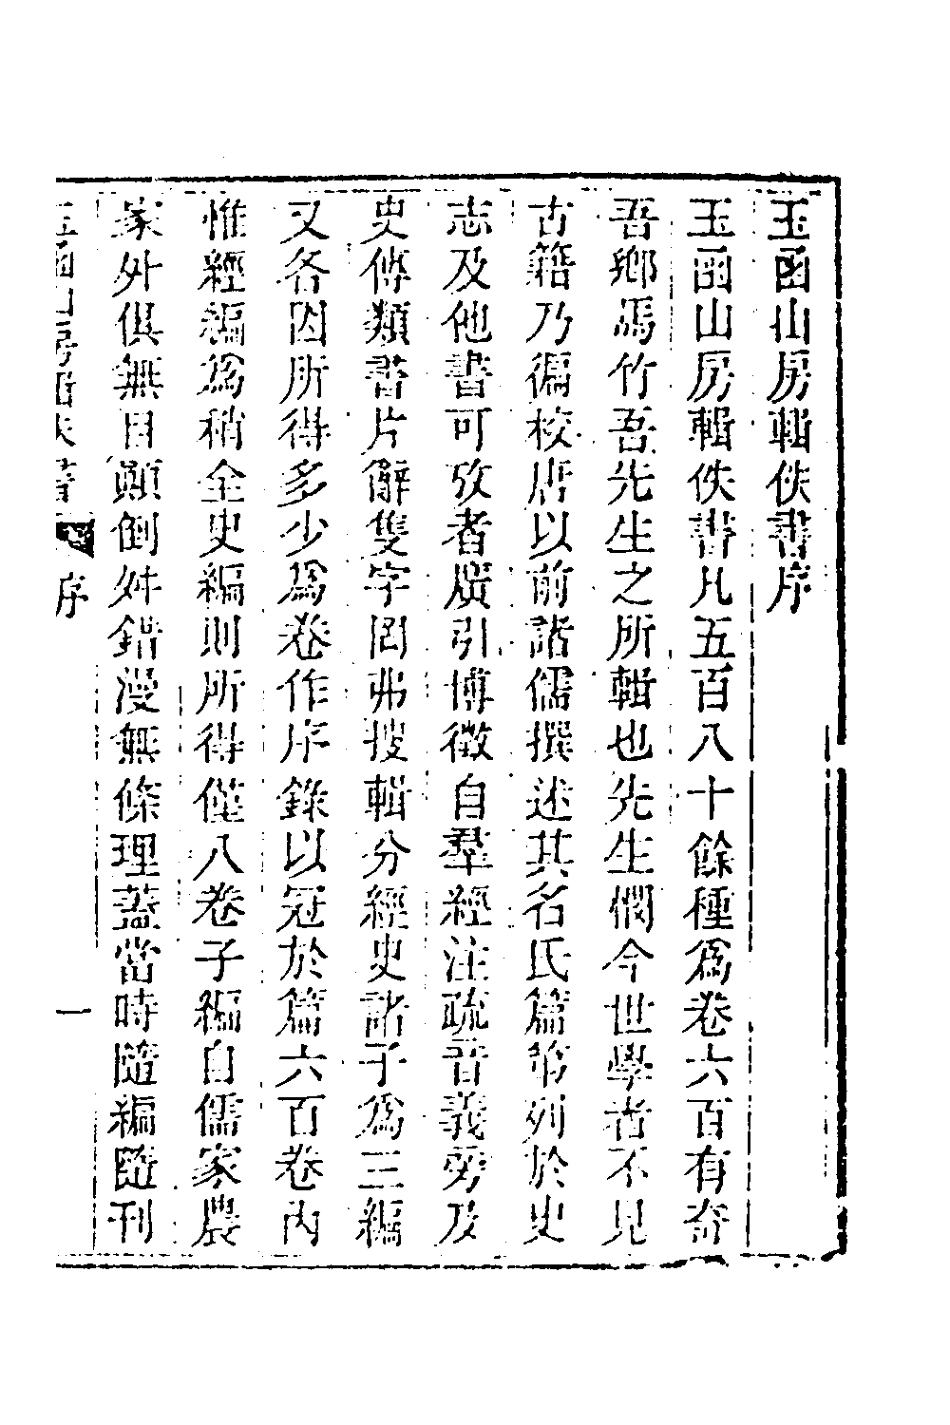 玉函山房輯佚書序
玉函山房輯佚書凡五百八十餘種爲卷六百有奇
吾鄉馮竹吾先生之所輯也先生憫今世學者不見
古籍乃徧校唐以前諸儒撰述其名氏篇第列於史
志及他書可攷者廣引博徵自羣經注疏音義旁及
史傳類書片辭隻字罔弗搜輯分經史諸子爲三編
又各因所得多少爲卷作序錄以冠於篇六百卷內
惟經編爲稍全史編則所得僅八卷子編自儒家農
家外俱無目顛倒舛錯漫無條理蓋當時隨編隨刊
玉函山房輯佚書 序 一